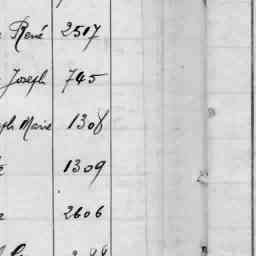 René 2517
Joseph 745
Marie 1308
1309
2606